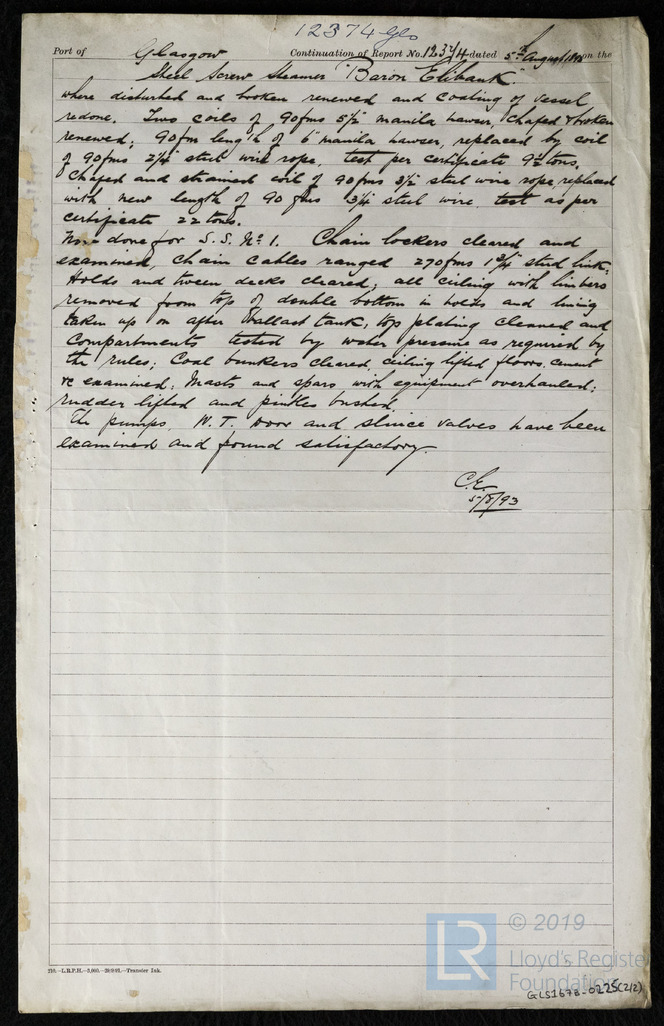 12374 Gls
Port of Glasgow Continuation of Report No. 12374 dated 5th August 1893 on the
Steel Screw Steamer "Baron Elibank".
where disturbed and broken renewed and coating of vessel
redone. Two coils of 90 fms 5½" manila hawser, chafed & broken
renewed; 90 fm length of 6" manila hawser, replaced by coil
of 90 fms 2¼" steel wire rope, test per certificate 9½ tons,
Chafed and strained coil of 90 fms 3½ steel wire rope, replaced
with new length of 90 fms 3¼ steel wire test as per
certificate 22 tons.
Now done for S.S. No. 1. Chain lockers cleared and
examined, chain cables ranged 270 fms 1¾" stud link.
Holds and tween decks cleared; all ceiling with limbers
removed from top of double bottom in holds and lining
taken up on after Ballast tank; top plating cleaned and
Compartments tested by water pressure as required by
the rules; Coal bunkers cleared ceiling lifted floors, cement
&c examined; Masts and spars with equipment overhauled;
rudder lifted and pintles bushed.
The pumps, W.T. Door and sluice valves have been
examined and found satisfactory.
C.E.
5/8/93
210.—L.R.P.H.—3,000.— —Transfer Ink.
LR © 2019
Lloyd's Register
Foundation
GLS1678-0225(2/2)